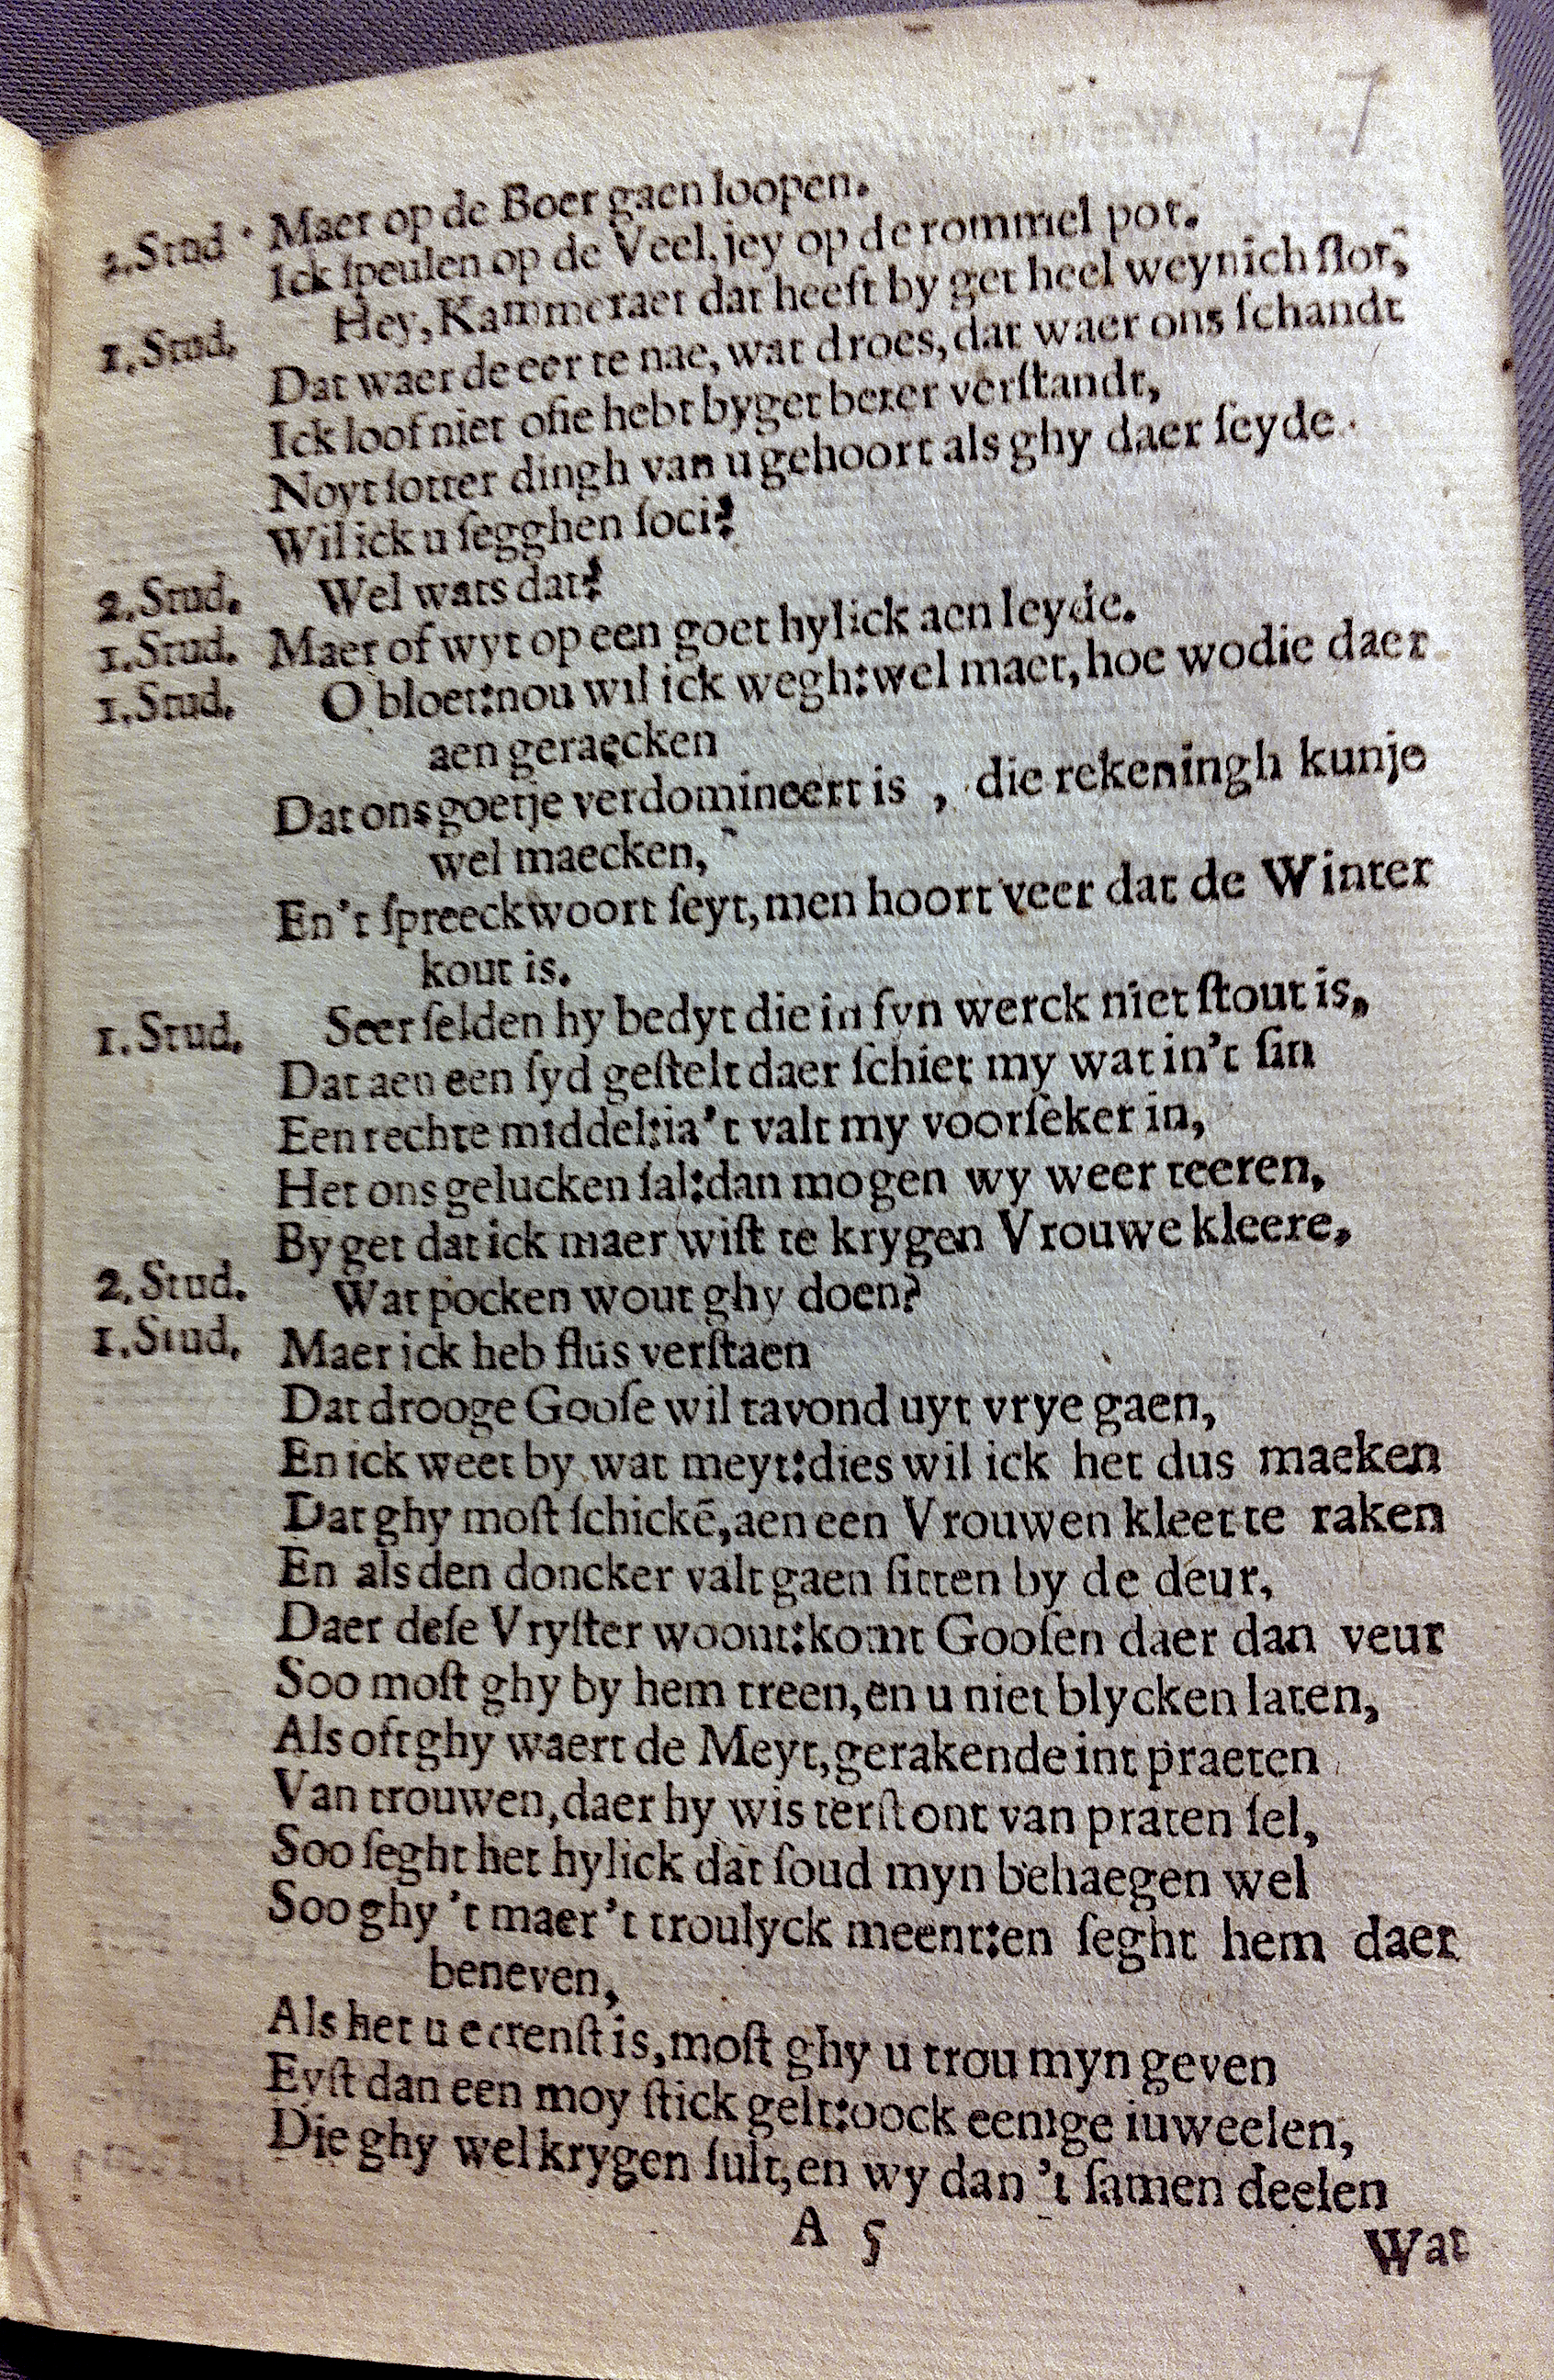 7
2.Stud. Maer op de Boer gaen loopen.
Ick ſpeulen op de Veel, jey op de rommel pot.
1.Stud. Hey, Kammeraet dat heeft by get heel weynich ſlot,
Dat waer de eer te nae, wat droes, dat waer ons ſchandt
Ick loof niet ofie hebt byget beter verſtandt,
Noyt ſotter dingh van u gehoort als ghy daer ſeyde.
Wil ick u ſegghen ſoci?
2.Stud. Wel wats dat?
1.Stud. Maer of wyt op een goet hylick aen leyde.
1.Stud. O bloet: nou wil ick wegh: wel maet, hoe wodie daer
aen geraecken
Dat ons goetje verdomineert is, die rekeningh kunje
wel maecken,
En 't ſpreeckwoort ſeyt, men hoort veer dat de Winter
kout is.
1.Stud. Seer ſelden hy bedyt die in ſyn werck niet ſtout is,
Dat aen een ſyd geſtelt daer ſchiet my wat in't ſin
Een rechte middel: ia 't valt my voorſeker in,
Het ons gelucken ſal: dan mogen wy weer teeren,
By get dat ick maer wiſt te krygen Vrouwe kleere,
2.Stud. Wat pocken wout ghy doen?
1.Stud. Maer ick heb flus verſtaen
Dat drooge Gooſe wil tavond uyt vrye gaen,
En ick weet by wat meyt: dies wil ick het dus maeken
Dat ghy moſt ſchickē, aen een Vrouwen kleet te raken
En als den doncker valt gaen ſitten by de deur,
Daer deſe Vryſter woont: komt Gooſen daer dan veur
Soo moſt ghy by hem treen, en u niet blycken laten,
Als oft ghy waert de Meyt, gerakende int praeten
Van trouwen, daer hy wis terſtont van praten ſel,
Soo ſeght het hylick dat ſoud myn behaegen wel
Soo ghy 't maer 't troulyck meent: en ſeght hem daer
beneven,
Als het u eerenſt is, moſt ghy u trou myn geven
Eyſt dan een moy ſtick gelt: oock eenige iuweelen,
Die ghy wel krygen ſult, en wy dan 't ſamen deelen
A 5
Wat